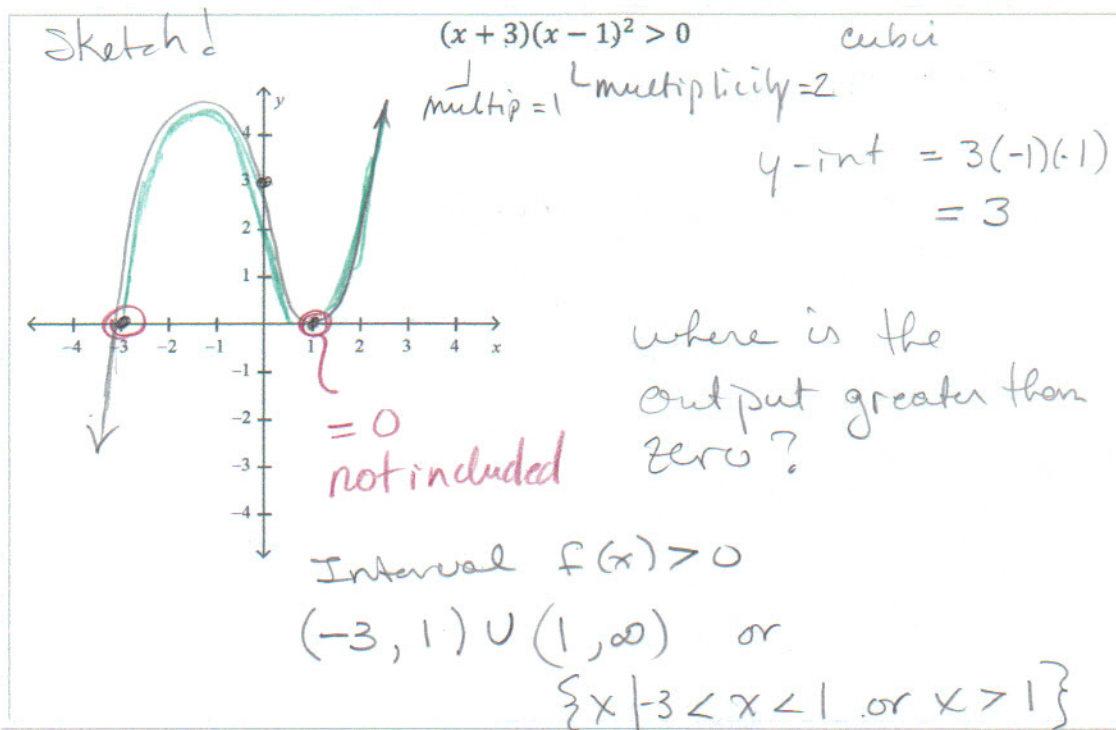 Sketch!
(x + 3)(x − 1)² > 0
cubic
multip = 1
multiplicity = 2
y-int = 3(-1)(-1)
= 3
y
4
3
2
1
−4 −3 −2 −1 1 2 3 4 x
−1
−2
−3
−4
= 0
not included
where is the
output greater than
zero?
Interval f(x) > 0
(-3, 1) ∪ (1, ∞) or
{x | -3 < x < 1 or x > 1}